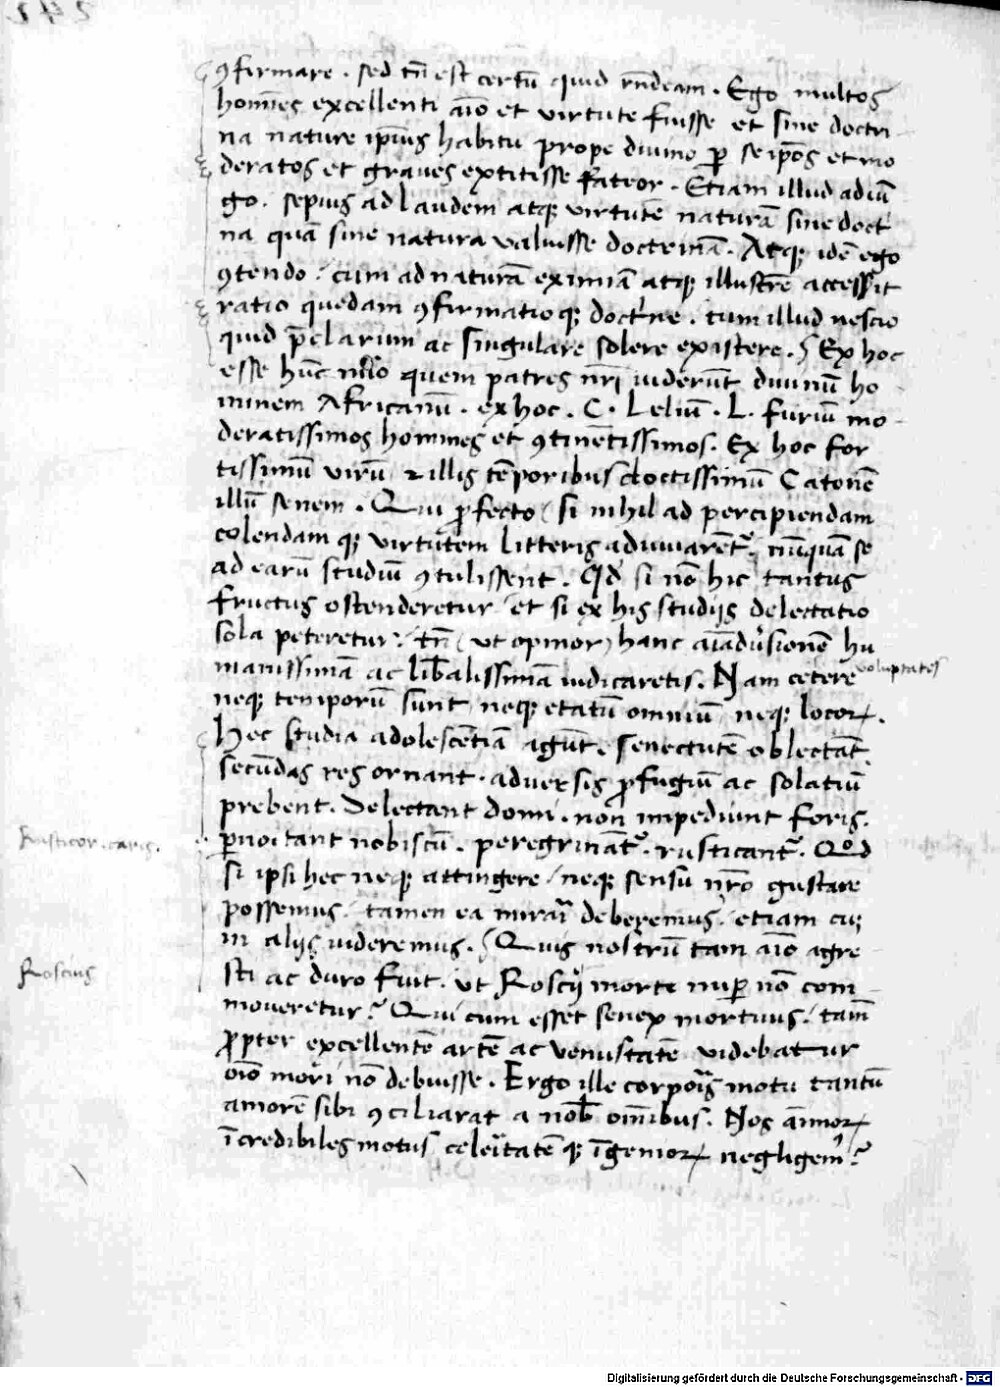 ꝯfirmare . sed tn̄ est certū quid rn̄deam . Ego multos
homīes excellenti aīo et virtute fuisse et sine doctri
na nature ip̄ius habitu prope diuino ꝑ se ip̄os et mo
deratos et graues extitisse fateor . Etiam illud adiū
go . sepius ad laudem atqꝫ virtutē naturā sine doctⁱ
na quā sine natura valuisse doctrinā . Atqꝫ idē ego
ꝯtendo . cum ad naturā eximiā atqꝫ illustrē accesſit
ratio quedam ꝯfirmatio qꝫ doctⁱne . tum illud nescio
quid p̄clarum ac singulare solere existere . Ex hoc
esse hūc nūo quem patres nr̄i uiderūt diuinū ho
minem Africanū . ex hoc . C . Leliū . L . furiū mo
deratissimos homines et ꝯtinētissimos . Ex hoc for
tissimū virū ⁊ illis tēporibus doctissimū Catonē
illū senem . Qui ꝓfecto / si nihil ad percipiendam
colendam qꝫ virtutem litteris adiuuarēt᷑ nūquā se
ad earū studiū ꝯtulissent . Qd̓ si nō hic tantus
fructus ostenderetur / et si ex his studijs delectatio
sola peteretur / tn̄ ( vt opinor ) hanc aīaduˢionē hu
manissimā ac lib̄alissimā iudicaretis . Nam cetere voluptates
neqꝫ temporū sunt neqꝫ etatū omniū neqꝫ locoꝝ .
Hec studia adolescētiā agūt . senectutē oblectāt
secūdas res ornant . aduersis ꝓfugiū ac solatiū
prebent . Delectant domi . non impediunt foris .
ꝑnoctant nobiscū . peregrināt᷑ . rusticant᷑ . Qod
Rusticor . caris .
si ipsi hec neqꝫ attingere / neqꝫ sensū nr̄o gustare
possemus / tamen ea mirari deberemus / etiam cū
in alijs uideremus . Quis nostrū tam aīo agre
sti ac duro fuit . vt Roscij morte nuꝑ nō com
Roscius
moueretur ? Qui cum esset senex mortuus / tam̄
ꝓpter excellentē artē ac venustatē videbatur
oīo mori nō debuisse . Ergo ille corporis motu tantū
amorē sibi ꝯciliarat a nob̄ om̄ibus . Nos āimoꝝ
īcredibiles motus celeritatē qꝫ īgenioꝝ negligem᷒ ?